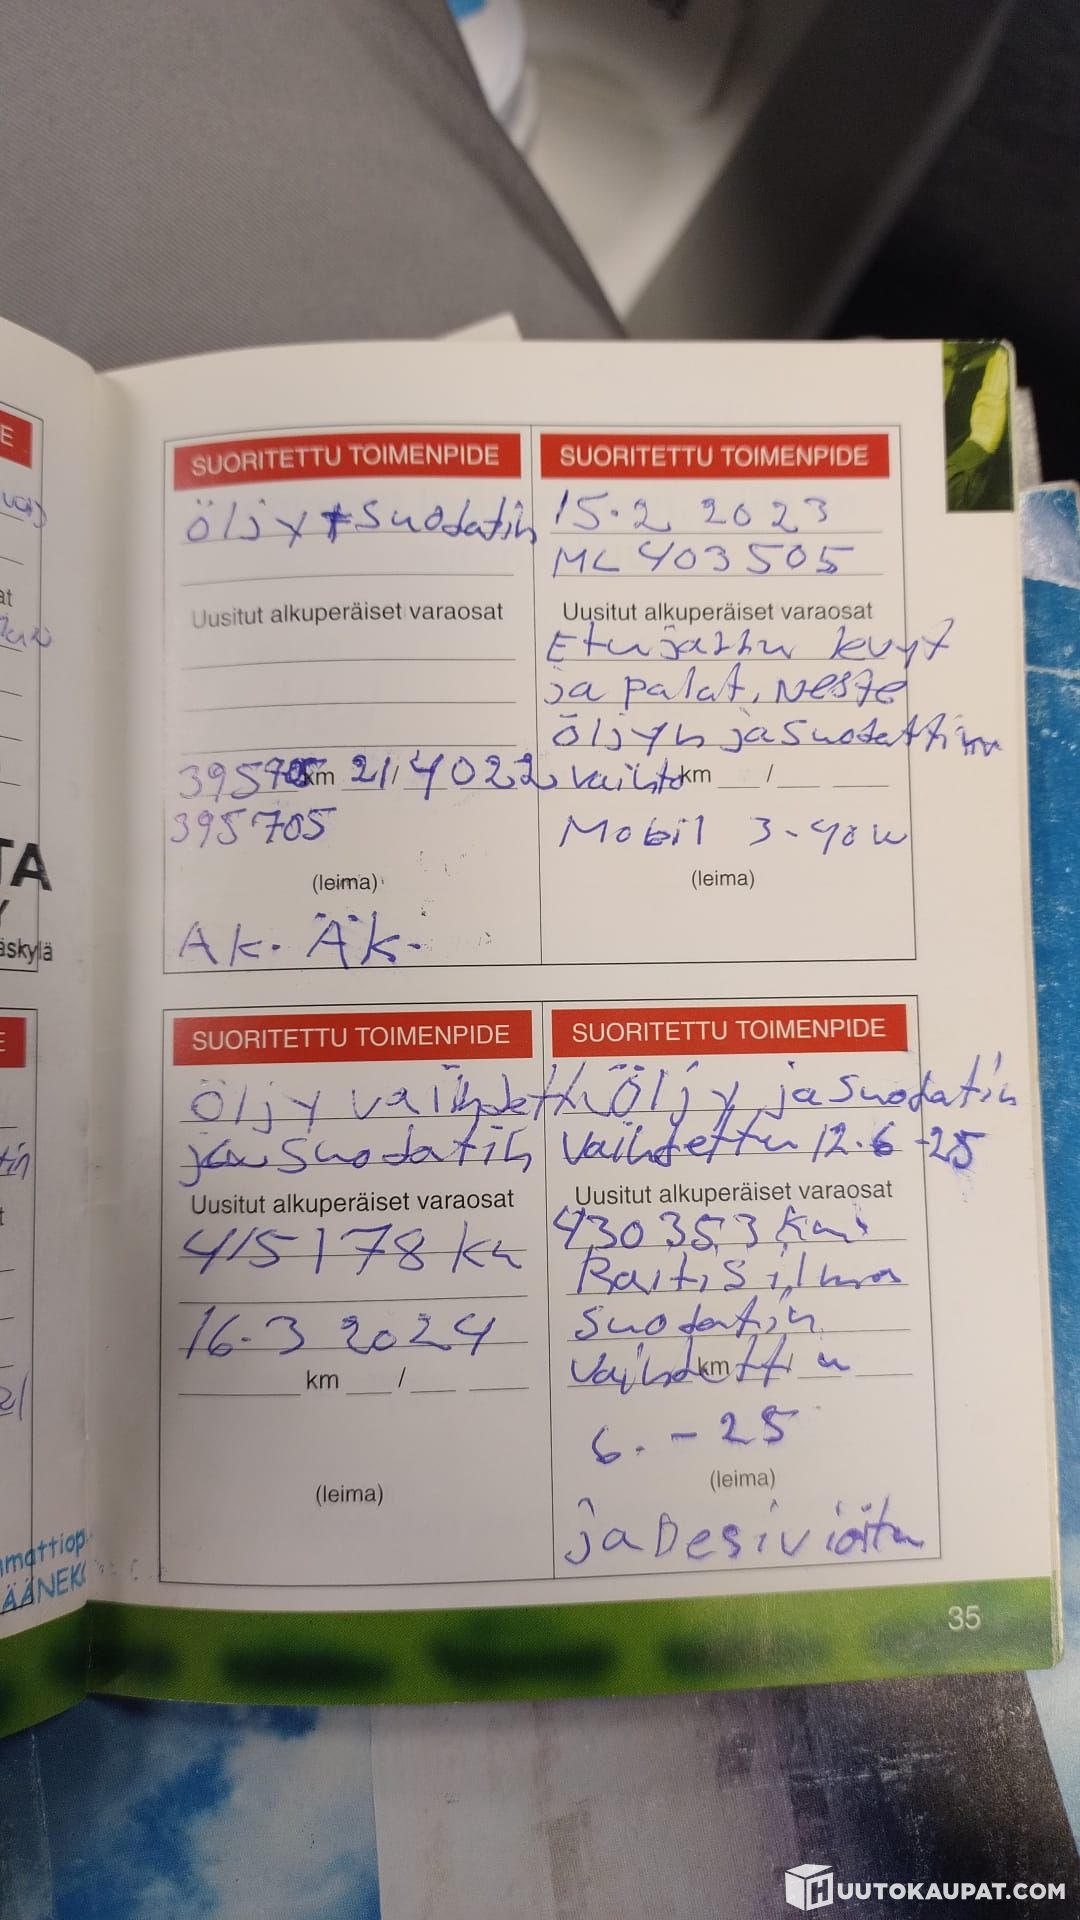 SUORITETTU TOIMENPIDE
Öljy + Suodatin
Uusitut alkuperäiset varaosat
395705 km 21/4 022
395705
(leima)
Ak. Äk.
SUORITETTU TOIMENPIDE
15.2 2023
ML 403505
Uusitut alkuperäiset varaosat
Etujarru levyt
ja palat, neste
öljyn ja suodattimn
vaihto km /
Mobil 3-40w
(leima)
SUORITETTU TOIMENPIDE
Öljy vaihdettu
ja suodatin
Uusitut alkuperäiset varaosat
415178 km
16.3 2024
km /
(leima)
SUORITETTU TOIMENPIDE
Öljy ja suodatin
vaihdettu 12.6 -25
Uusitut alkuperäiset varaosat
430353 km
Raitisilma
suodatin
vaihdettu km /
6. -25
(leima)
ja Desivioitu
35
TA
Y
äskylä
mmattiop
ÄÄNEK
HUUTOKAUPAT.COM